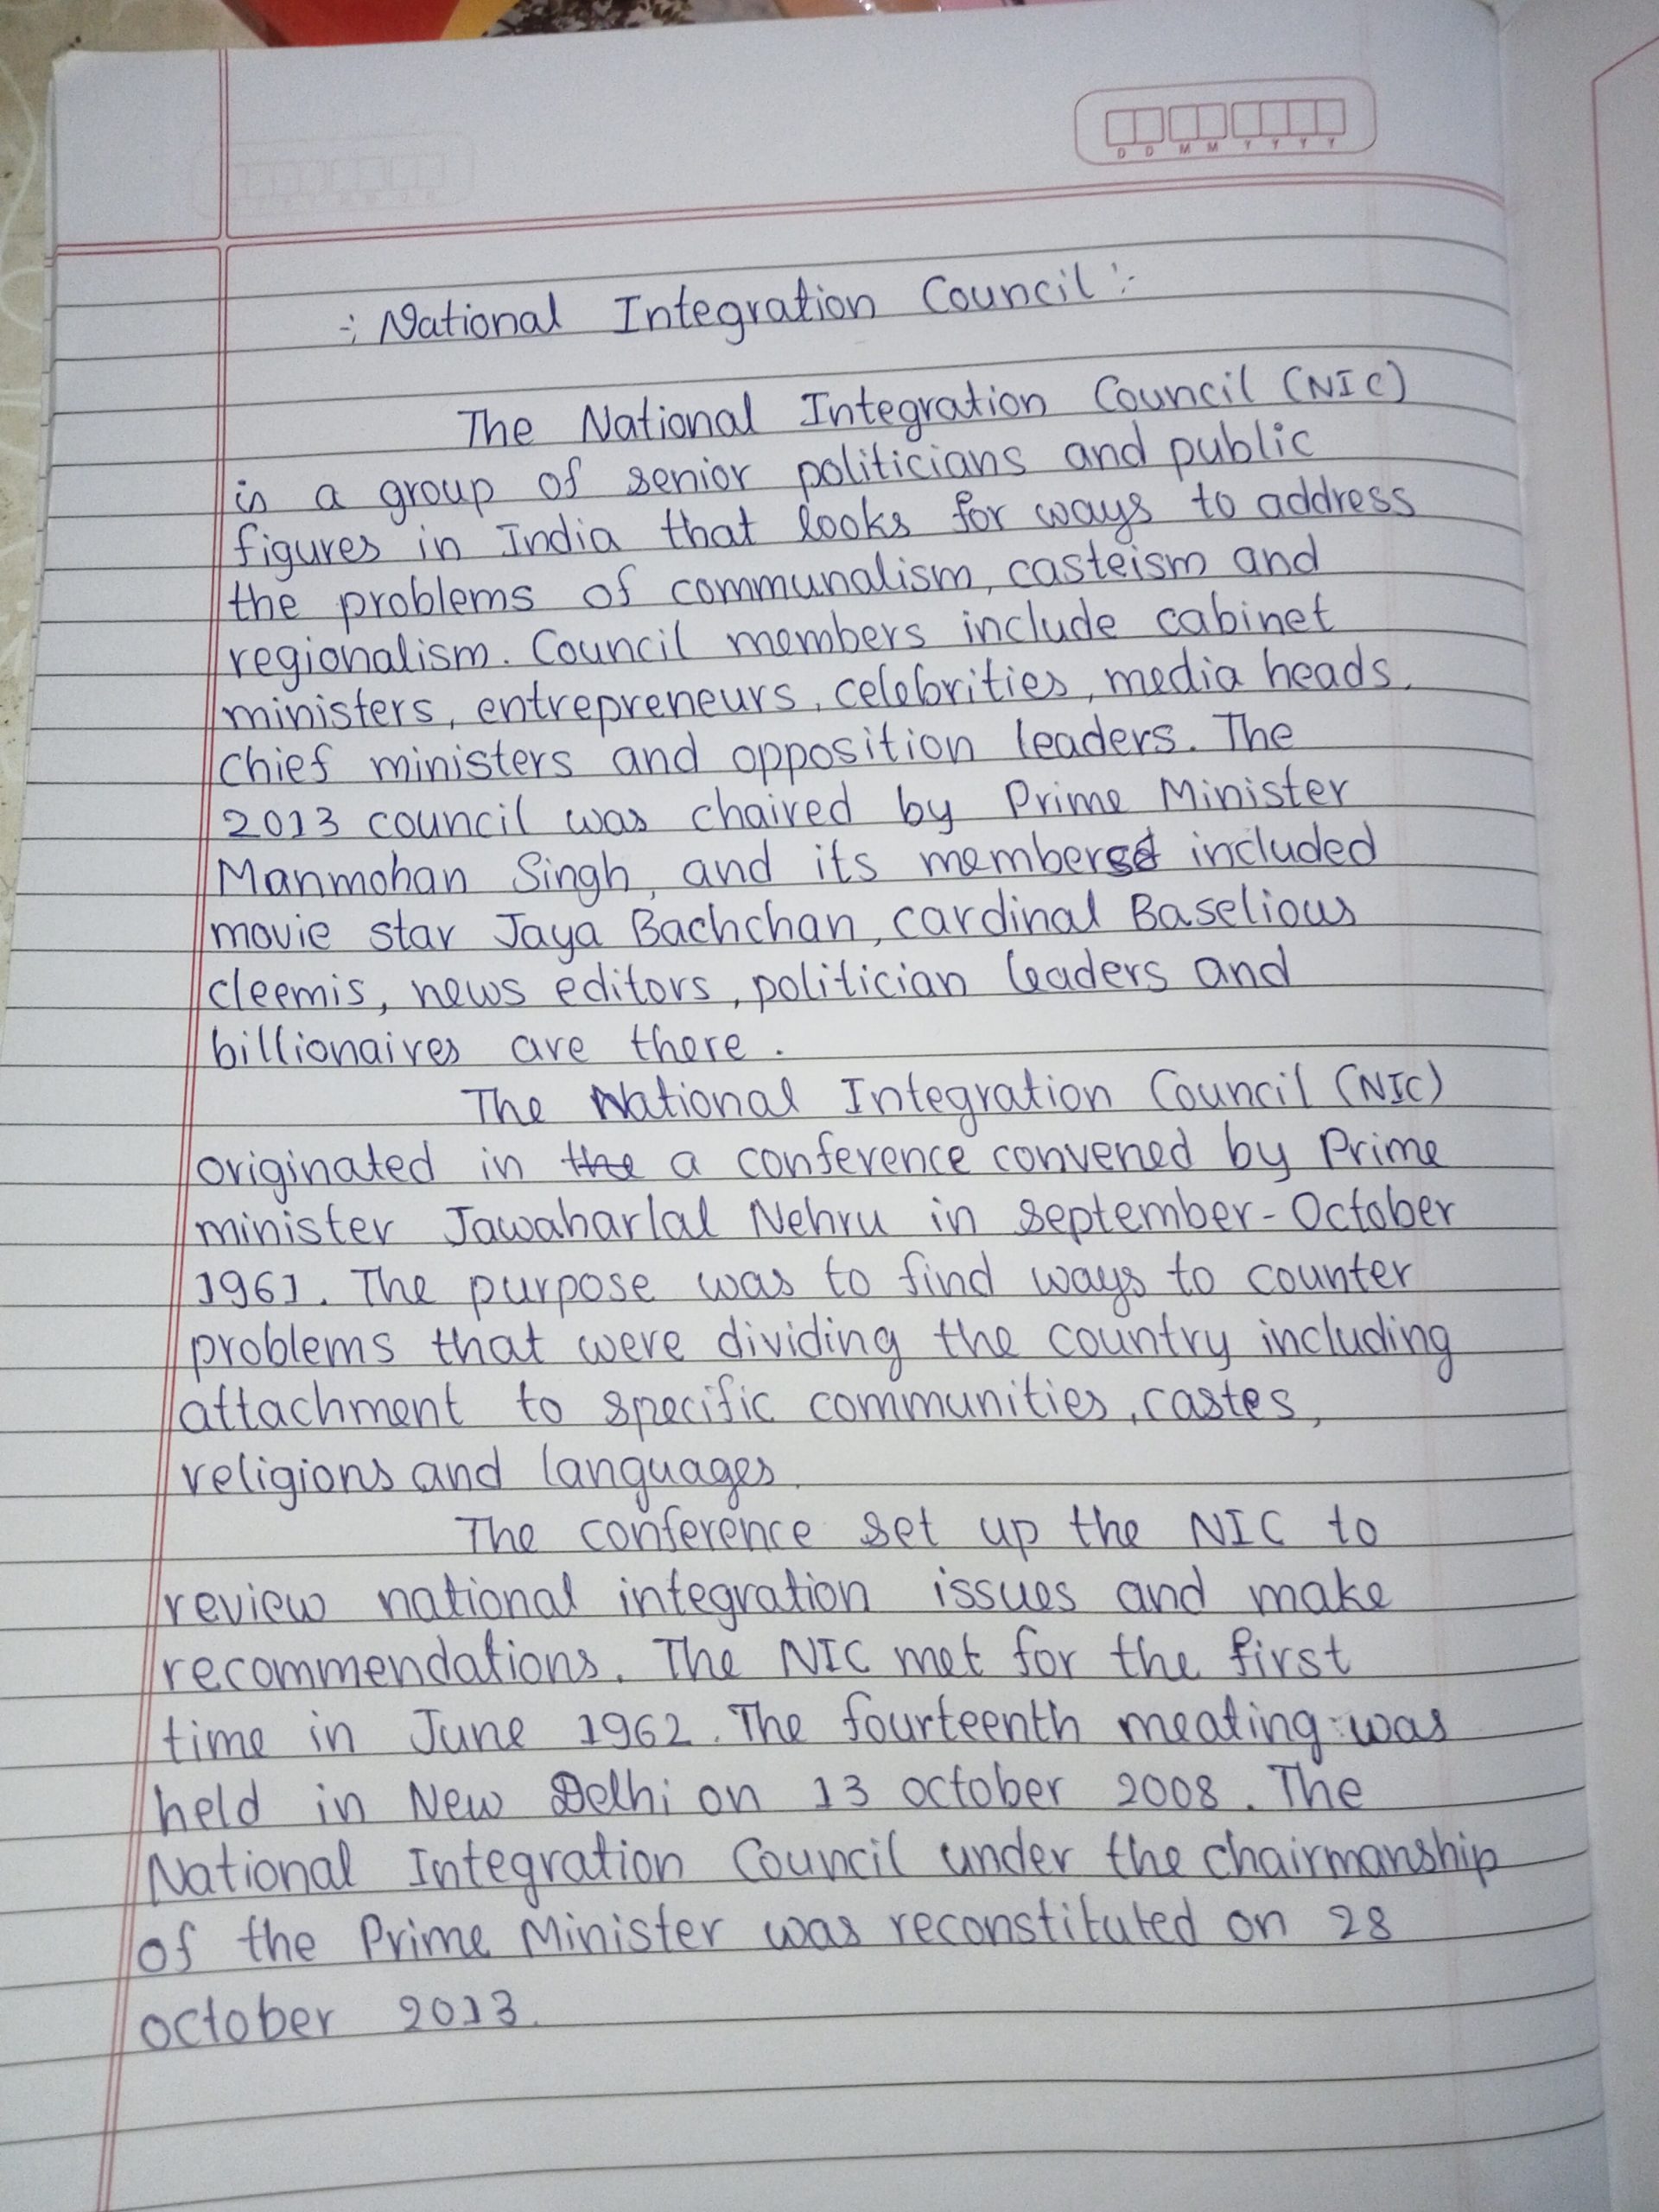 D D M M Y Y Y Y
:- National Integration Council :-
The National Integration Council (NIC)
is a group of senior politicians and public
figures in India that looks for ways to address
the problems of communalism, casteism and
regionalism. Council members include cabinet
ministers, entrepreneurs, celebrities, media heads,
chief ministers and opposition leaders. The
2013 council was chaired by Prime Minister
Manmohan Singh, and its members included
movie star Jaya Bachchan, cardinal Baselious
cleemis, news editors, politician leaders and
billionaires are there.
The National Integration Council (NIC)
originated in the a conference convened by Prime
minister Jawaharlal Nehru in september-October
1961. The purpose was to find ways to counter
problems that were dividing the country including
attachment to specific communities, castes,
religions and languages.
The conference set up the NIC to
review national integration issues and make
recommendations. The NIC met for the first
time in June 1962. The fourteenth meating was
held in New Delhi on 13 october 2008. The
National Integration Council under the chairmanship
of the Prime Minister was reconstituted on 28
october 2013.